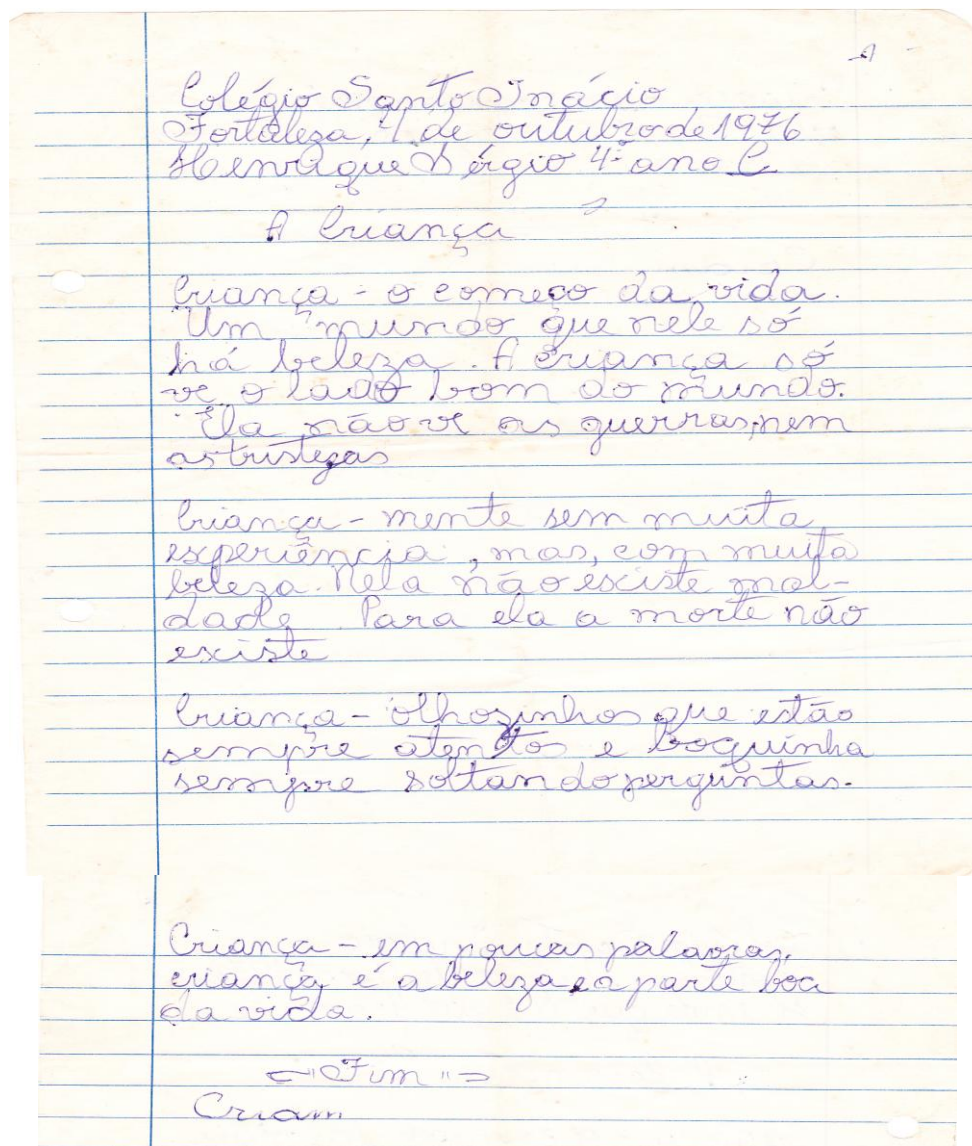 Colégio Santo Inácio
Fortaleza, 4 de outubro de 1976
Henrique Sérgio 4º ano C
A Criança
Criança - o começo da vida.
Um mundo que nele só
há beleza. A criança só
vê o lado bom do mundo.
Ela não vê as guerras, nem
as tristezas
Criança - mente sem muita
experiência, mas, com muita
beleza. Nela não existe mal-
dade. Para ela a morte não
existe
Criança - olhozinhos que estão
sempre atentos e boquinha
sempre soltando perguntas.
Criança - em poucas palavras,
criança é a beleza, e a parte boa
da vida.
"Fim"
Criam